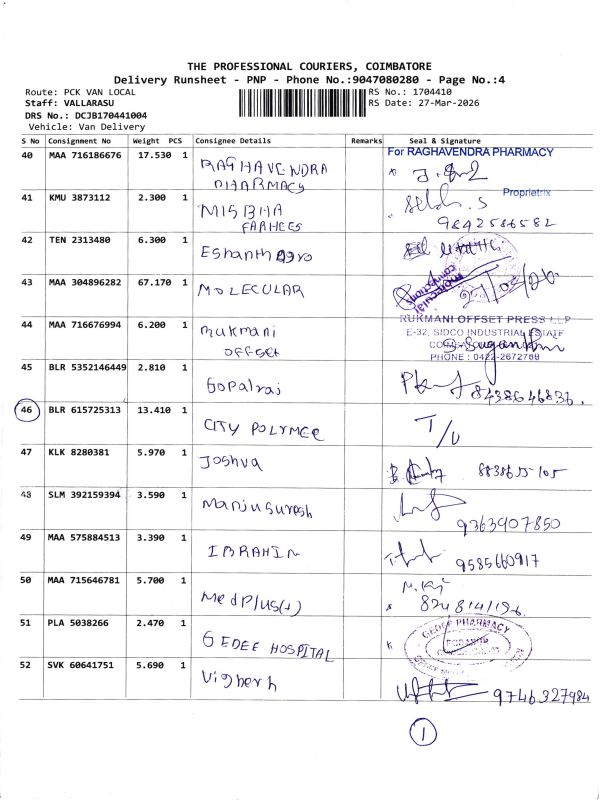 THE PROFESSIONAL COURIERS, COIMBATORE
Delivery Runsheet - PNP - Phone No.:9047080280 - Page No.:4
Route: PCK VAN LOCAL
RS No.: 1704410
Staff: VALLARASU
RS Date: 27-Mar-2026
DRS No.: DCJB170441004
Vehicle: Van Delivery
S No Consignment No Weight PCS Consignee Details Remarks Seal & Signature
40 MAA 716186676 17.530 1 RAGHAVENDRA For RAGHAVENDRA PHARMACY
PHARMACY
Proprietrix
41 KMU 3873112 2.300 1 MISBHA
FARHEES 9842586582
42 TEN 2313480 6.300 1 Eshanth Agro
43 MAA 304896282 67.170 1 MOLECULAR
44 MAA 716676994 6.200 1 Rukmani RUKMANI OFFSET PRESS LLP
OFFSET E-32, SIDCO INDUSTRIAL ESTATE
PHONE : 0422-2672708
45 BLR 5352146449 2.810 1 Gopalraj 8438646836.
46 BLR 615725313 13.410 1 CITY POLYMER T/U
47 KLK 8280381 5.970 1 Joshva 8838655105
48 SLM 392159394 3.590 1 Manjusuresh
9363907850
49 MAA 575884513 3.390 1 IBRAHIM 9585660917
50 MAA 715646781 5.700 1 MedPlus(+)
51 PLA 5038266 2.470 1 GEDEE HOSPITAL GEDEE PHARMACY
52 SVK 60641751 5.690 1 Vighesh 9746327984
1